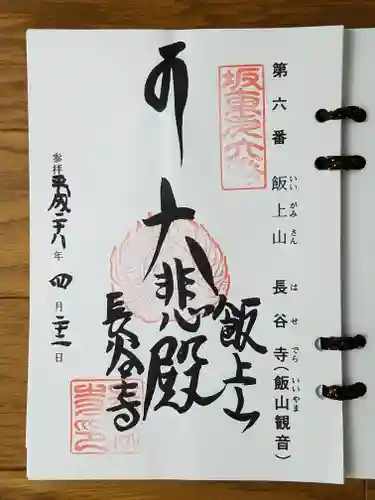 第六番 飯上山 長谷寺(飯山観音)
いいがみさん はせでら いいやま
坂東第六番
大悲殿
飯上山
長谷寺
参拝 平成二十八年 四月 二十三日